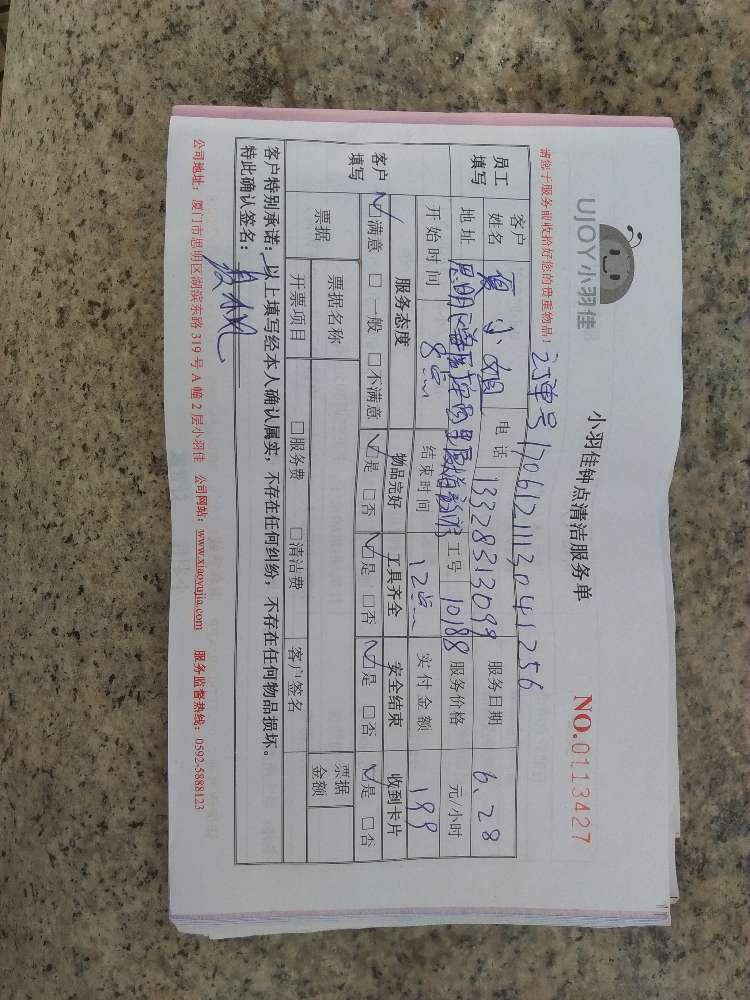 UJOY小羽佳
小羽佳钟点清洁服务单
NO.0113427
请您于服务前收拾好您的贵重物品!
订单号1706121113041256
员工填写 客户姓名 夏小姐 电话 13328313099 服务日期 6.28
地址 思明区 工号 10188 服务价格 元/小时
开始时间 8点 结束时间 12点 实付金额 199
客户填写 服务态度 物品完好 工具齐全 安全结束 收到卡片
☑满意 □一般 □不满意 ☑是 □否 ☑是 □否 ☑是 □否 ☑是 □否
票据 票据名称 票据金额
开票项目 □服务费 □清洁费 客户签名
客户特别承诺:以上填写经本人确认属实,不存在任何纠纷,不存在任何物品损坏。
特此确认签名:
公司地址:厦门市思明区湖滨东路319号A幢2层小羽佳 公司网站:www.xiaoyujia.com 服务监督热线:0592-5888123